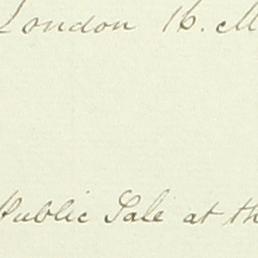 London 16. M
Public Sale at th